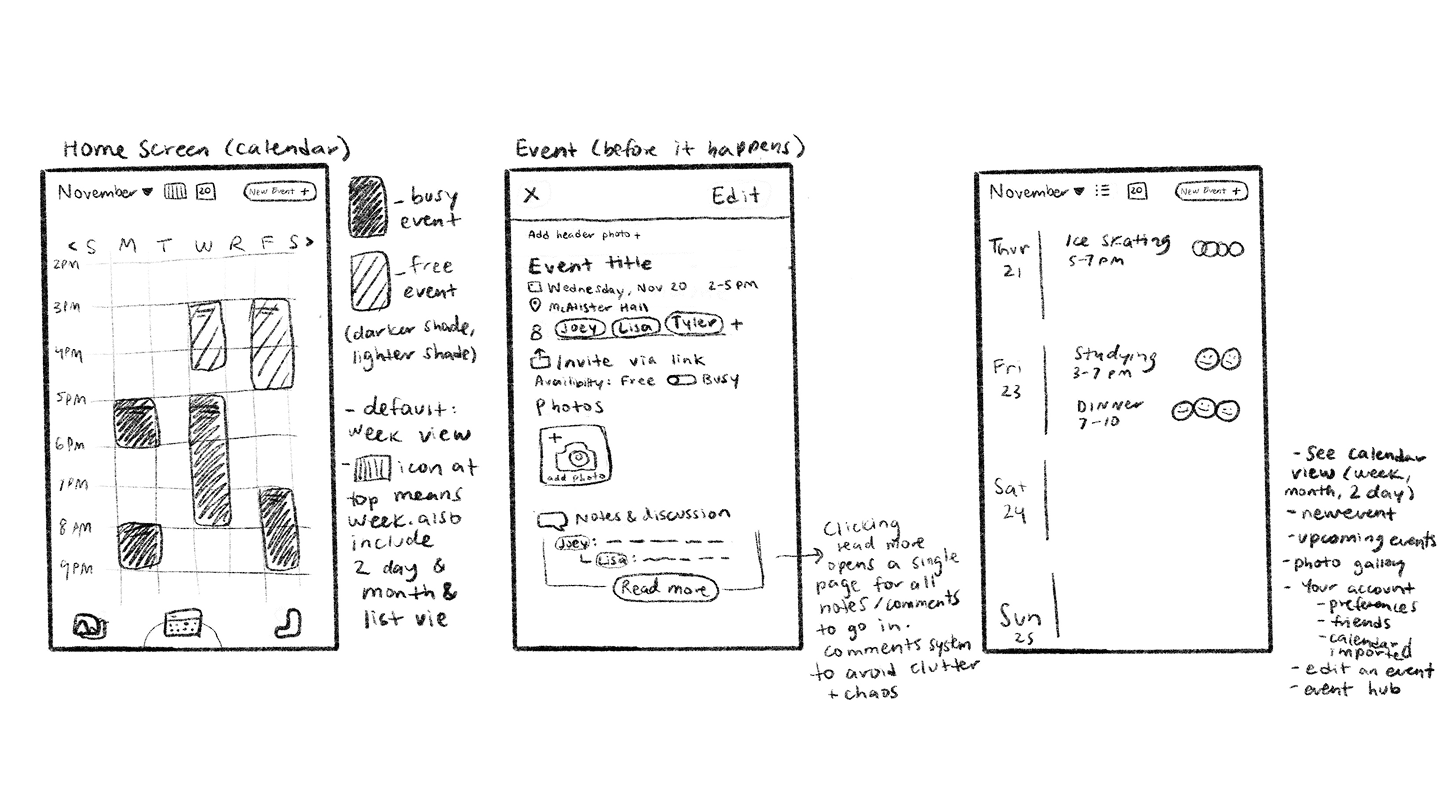 Home Screen (calendar)
November 20 New Event +
< S M T W R F S >
2PM
3PM
4PM
5PM
6PM
7PM
8AM
9PM
- busy
event
- free
event
(darker shade,
lighter shade)
- default:
week view
- icon at
top means
week. also
include
2 day &
month &
list vie
Event (before it happens)
X Edit
Add header photo +
Event title
Wednesday, Nov 20 2-5pm
McAlister Hall
Joey Lisa Tyler +
Invite via link
Availibilty: Free Busy
Photos
+
add photo
Notes & discussion
Joey:
Lisa:
Read more
Clicking
read more
opens a single
page for all
notes/comments
to go in.
comments system
to avoid clutter
+ chaos
November 20 New Event +
Thur
21
Ice skating
5-7pm
Fri
23
Studying
3-7 pm
DINNER
7-10
Sat
24
Sun
25
- See calendar
view (week,
month, 2 day)
- new event
- upcoming events
- photo gallery
- Your account
- preferences
- friends
- calendar
imported
- edit an event
- event hub